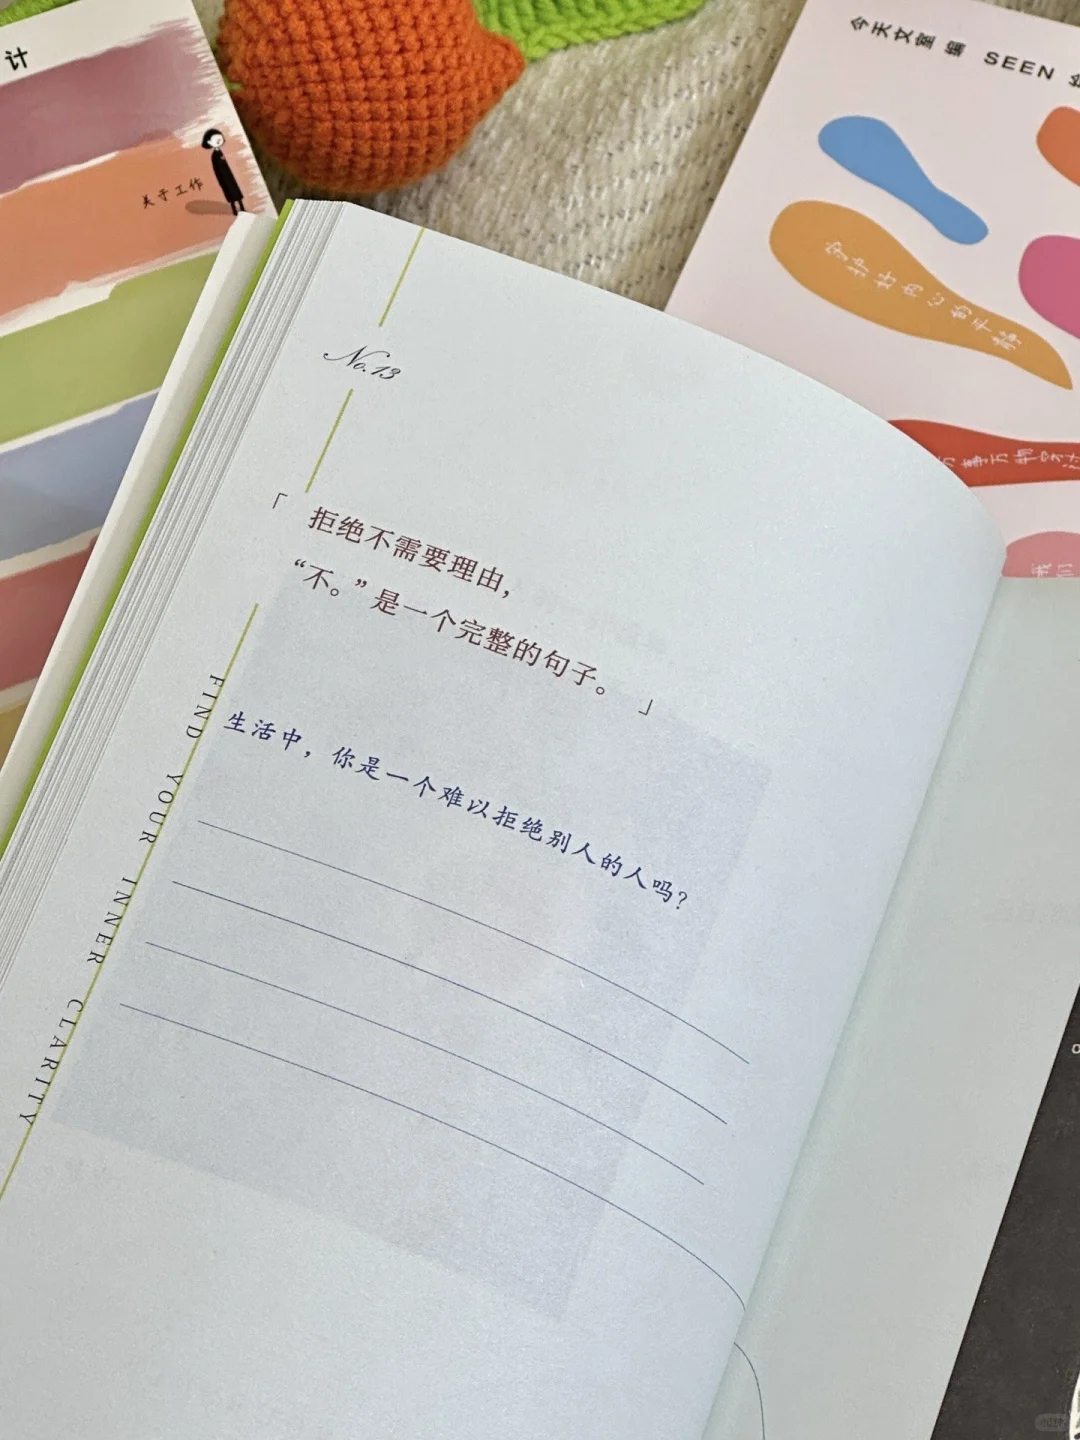 计
关于工作
今天文室 编 SEEN 绘
守护好内心的平静
万事万物穿过
我们
No.13
「 拒绝不需要理由，
“不。”是一个完整的句子。 」
生活中，你是一个难以拒绝别人的人吗？
FIND YOUR INNER CLARITY